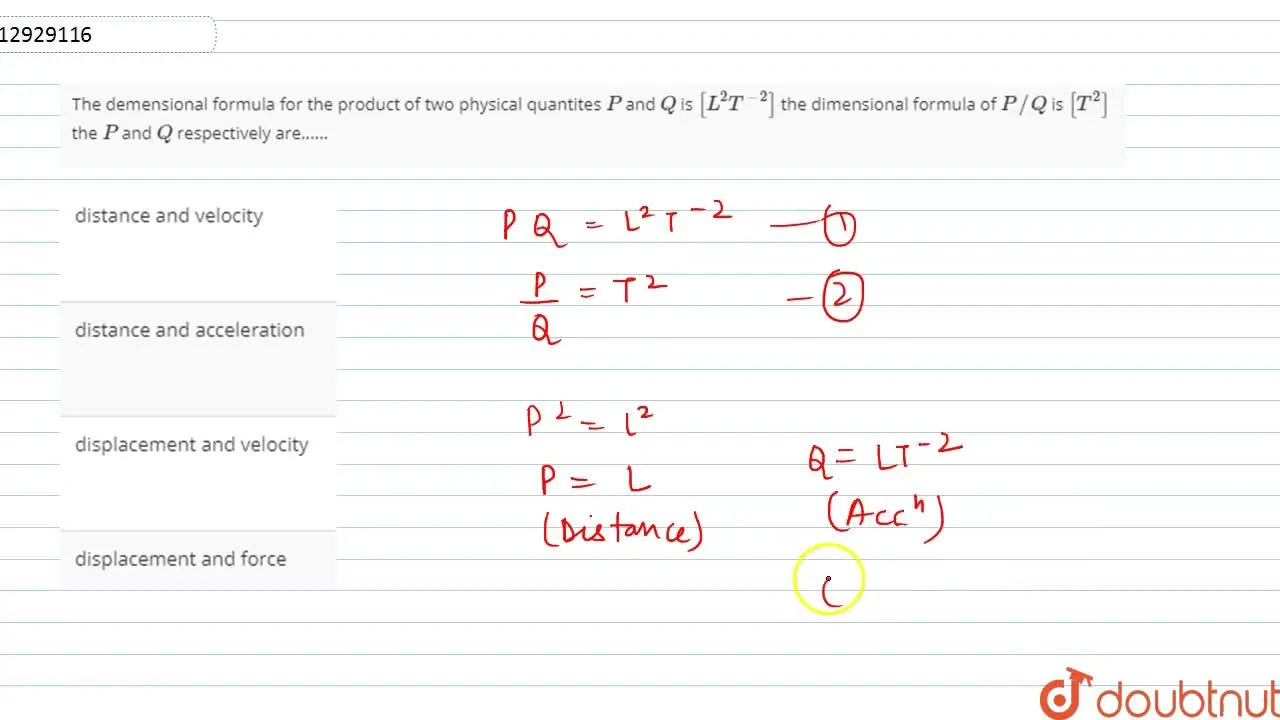 12929116
The demensional formula for the product of two physical quantites P and Q is [L²T⁻²] the dimensional formula of P/Q is [T²]
the P and Q respectively are......
distance and velocity
distance and acceleration
displacement and velocity
displacement and force
P Q = L² T⁻² — ①
P/Q = T² — ②
P² = L²
P = L
(Distance)
Q = LT⁻²
(Accⁿ)
(
doubtnut